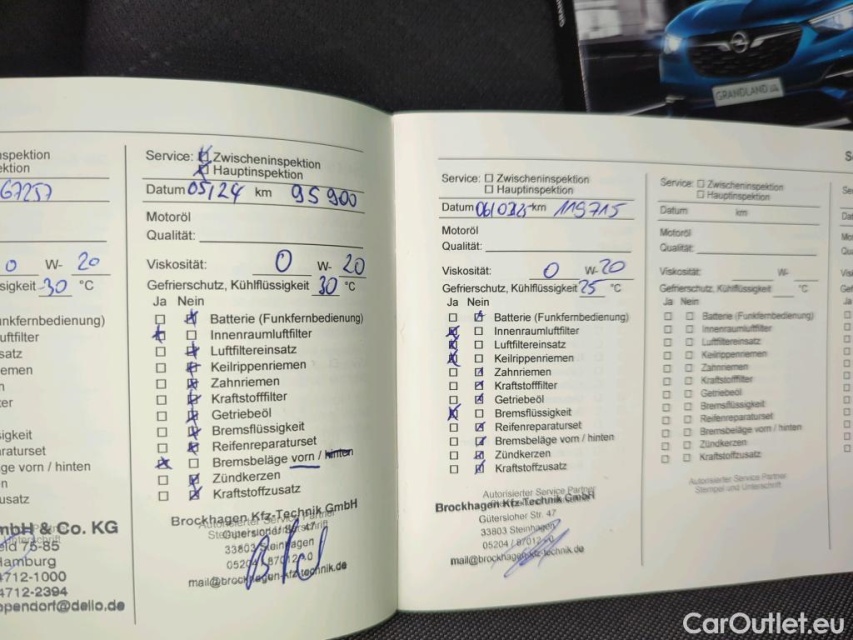 GRANDLAND
spektion
ktion
67257
0 W- 20
sigkeit 30 °C
nkfernbedienung)
uftfilter
satz
emen
n
er
sigkeit
araturset
ge vorn / hinten
n
usatz
mbH & Co. KG
eld 75-85
Hamburg
4712-1000
4712-2394
ppendorf@dello.de
Service: Zwischeninspektion
Hauptinspektion
Datum 05/24 km 95900
Motoröl
Qualität:
Viskosität: 0 W- 20
Gefrierschutz, Kühlflüssigkeit 30 °C
Ja Nein
Batterie (Funkfernbedienung)
Innenraumluftfilter
Luftfiltereinsatz
Keilrippenriemen
Zahnriemen
Kraftstofffilter
Getriebeöl
Bremsflüssigkeit
Reifenreparaturset
Bremsbeläge vorn / hinten
Zündkerzen
Kraftstoffzusatz
Brockhagen Kfz-Technik GmbH
Autorisierter Service Partner
Gütersloher Str. 47
33803 Steinhagen
05204 / 87012-0
mail@brockhagen-kfz-technik.de
Service: Zwischeninspektion
Hauptinspektion
Datum km 119715
Motoröl
Qualität:
Viskosität: 0 W- 20
Gefrierschutz, Kühlflüssigkeit 25 °C
Ja Nein
Batterie (Funkfernbedienung)
Innenraumluftfilter
Luftfiltereinsatz
Keilrippenriemen
Zahnriemen
Kraftstofffilter
Getriebeöl
Bremsflüssigkeit
Reifenreparaturset
Bremsbeläge vorn / hinten
Zündkerzen
Kraftstoffzusatz
Autorisierter Service Partner
Brockhagen Kfz-Technik GmbH
Gütersloher Str. 47
33803 Steinhagen
05204 / 87012-0
mail@brockhagen-kfz-technik.de
Service: Zwischeninspektion
Hauptinspektion
Datum km
Motoröl
Qualität:
Viskosität: W-
Gefrierschutz, Kühlflüssigkeit °C
Ja Nein
Batterie (Funkfernbedienung)
Innenraumluftfilter
Luftfiltereinsatz
Keilrippenriemen
Zahnriemen
Kraftstofffilter
Getriebeöl
Bremsflüssigkeit
Reifenreparaturset
Bremsbeläge vorn / hinten
Zündkerzen
Kraftstoffzusatz
Autorisierter Service Partner
Stempel und Unterschrift
CarOutlet.eu